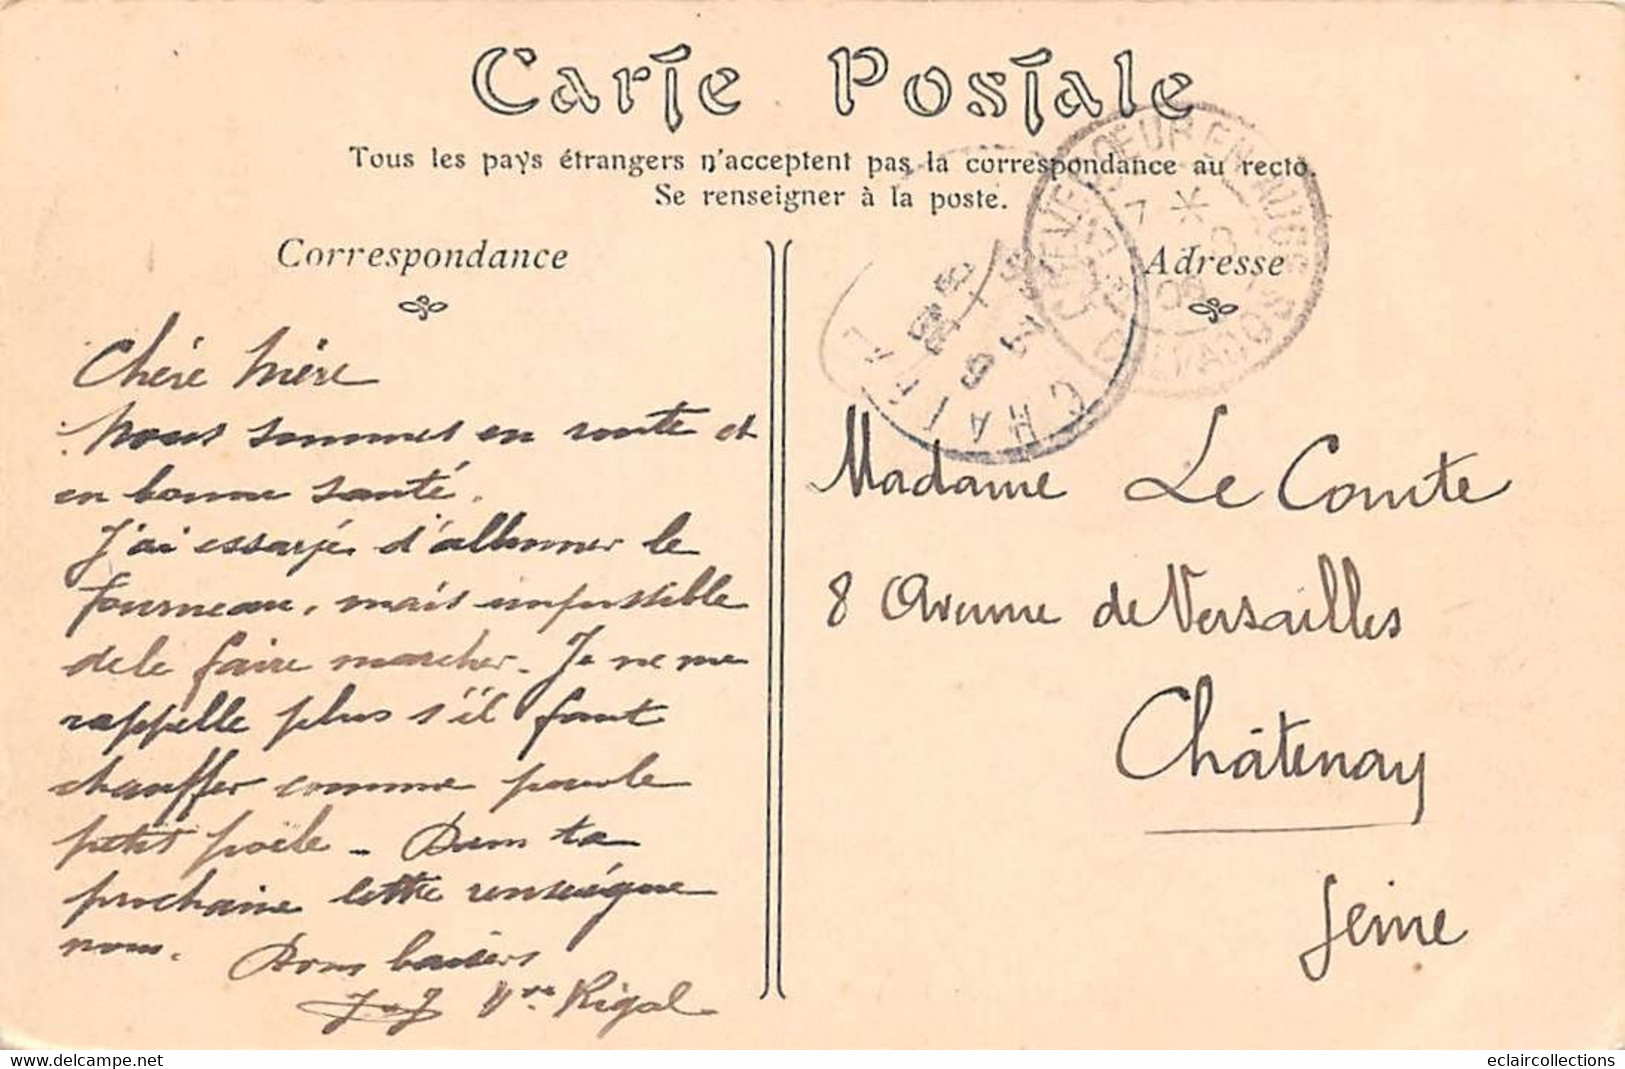 Carte Postale
Tous les pays étrangers n'acceptent pas la correspondance au recto.
Se renseigner à la poste.
Correspondance
Adresse
Chère Mère
Nous sommes en route et
en bonne santé.
J'ai essayé d'allumer le
fourneau, mais impossible
de le faire marcher. Je ne me
rappelle plus s'il faut
chauffer comme pour le
petit poële - Dans ta
prochaine lettre renseigne
nous. Bons baisers
J & J Rigal
Madame Le Comte
8 Avenue de Versailles
Châtenay
Seine
BEUVRON
CALVADOS
eclaircollections